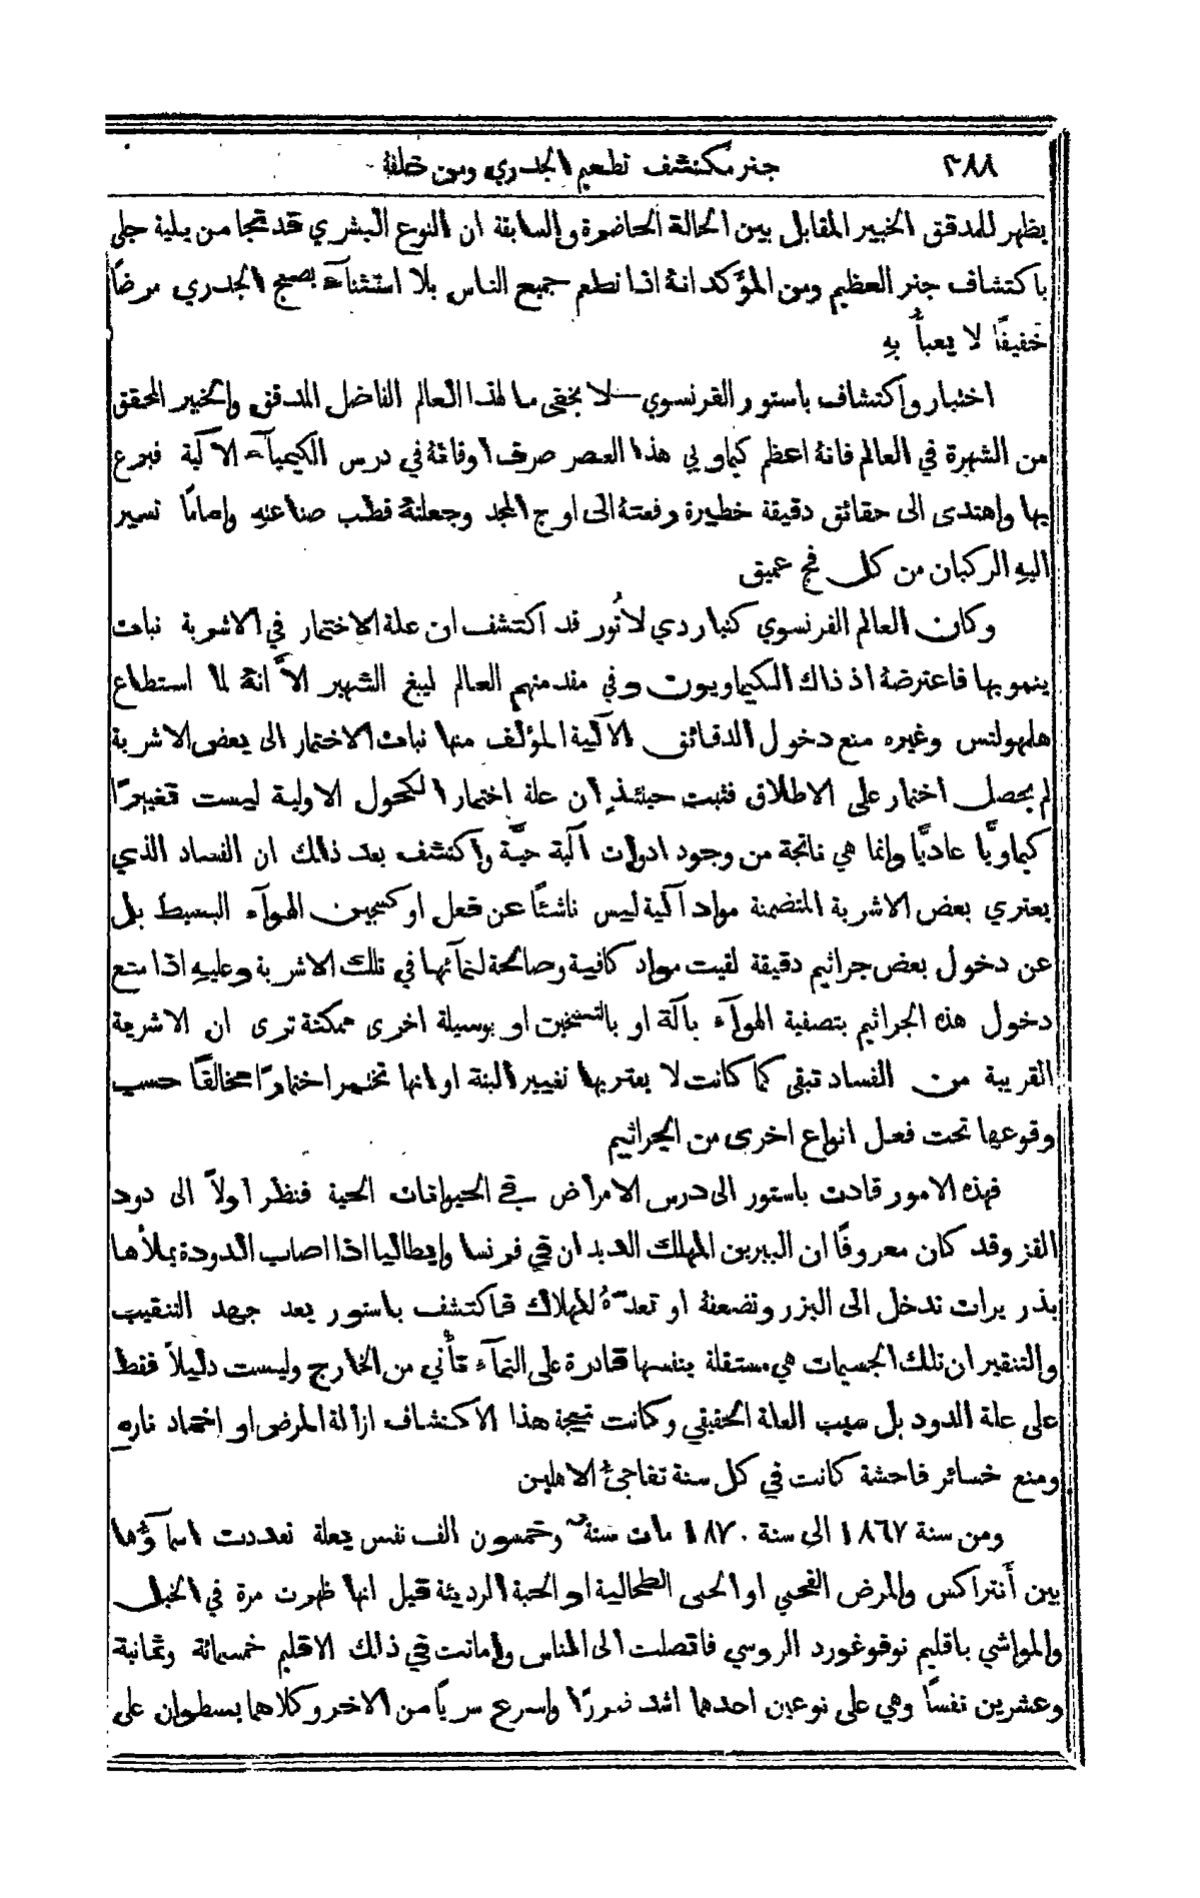 ٣٨٨ جنر مكتشف تطعيم الجدري ومن خلفهُ
يظهر للمدقق الخبير المقابل بين الحالة الحاضرة والسابقة ان النوع البشري قد نجا من بلية جلى
باكتشاف جنر العظيم ومن المؤكد انهُ اذا تطعم جميع الناس بلا استثنآء يصبح الجدري مرضًا
خفيفًا لا يعبأ بهِ
اختبار واكتشاف باستور الفرنسوي — لا يخفى ما لهذا العالم الفاضل المدقق والخبير المحقق
من الشهرة في العالم فانهُ اعظم كيماويي هذا العصر صرف اوقاتهُ في درس الكيميآء الآلية فبرع
بها واهتدى الى حقائق دقيقة خطيرة رفعتهُ الى اوج المجد وجعلتهُ قطب صناعتهِ وامامًا تسير
اليهِ الركبان من كل فج عميق
وكان العالم الفرنسوي كنياردي لاتُور قد اكتشف ان علة الاختمار في الاشربة نبات
ينمو بها فاعترضهُ اذ ذاك الكيماويون وفي مقدمتهم العالم ليبغ الشهير الاَّ انهُ لما استطاع
هلمهولتس وغيره منع دخول الدقائق الآلية المؤلف منها نبات الاختمار الى بعض الاشربة
لم يحصل اختمار على الاطلاق فثبت حينئذٍ ان علة اختمار الكحول الاولية ليست تغييرًا
كيماويًّا عاديًّا وانما هي ناتجة من وجود ادوات آلية حيَّة واكتشف بعد ذلك ان الفساد الذي
يعتري بعض الاشربة المتضمنة مواد آلية ليس ناشئًا عن فعل اوكسجين الهوآء البسيط بل
عن دخول بعض جراثيم دقيقة لقيت مواد كافية وصالحة لنمآئها في تلك الاشربة وعليهِ اذا منع
دخول هذه الجراثيم بتصفية الهوآء بآلة او بالتسخين او بوسيلة اخرى ممكنة ترى ان الاشربة
القريبة من الفساد تبقى كما كانت لا يعتريها تغيير البتة او انها تختمر اختمارًا مخالفًا حسب
وقوعها تحت فعل انواع اخرى من الجراثيم
فهذه الامور قادت باستور الى درس الامراض في الحيوانات الحية فنظر اولاً الى دود
القز وقد كان معروفًا ان البيرين المهلك الديدان في فرنسا وايطاليا اذا اصاب الدودة يملأها
بذريرات تدخل الى البزر وتضعفهُ او تعدّهُ للهلاك فاكتشف باستور بعد جهد التنقيب
والتنقير ان تلك الجسيمات هي مستقلة بنفسها قادرة على النمآء تأتي من الخارج وليست دليلاً فقط
على علة الدود بل سبب العلة الحقيقي وكانت نتيجة هذا الاكتشاف ازالة المرض او اخماد ناره
ومنع خسائر فاحشة كانت في كل سنة تفاجئُ الاهلين
ومن سنة ١٨٦٧ الى سنة ١٨٧٠ مات ستة وخمسون الف نفس بعلة تعددت اسمآؤها
بين أنتراكس والمرض الفحمي او الحمى الطحالية او الحبة الرديئة قيل انها ظهرت مرة في الخيل
والمواشي باقليم نوفوغورد الروسي فاتصلت الى الناس واماتت في ذلك الاقليم خمسمائة وثمانية
وعشرين نفسًا وهي على نوعين احدهما اشد ضررًا واسرع سريًا من الاخر وكلاهما يسطوان على